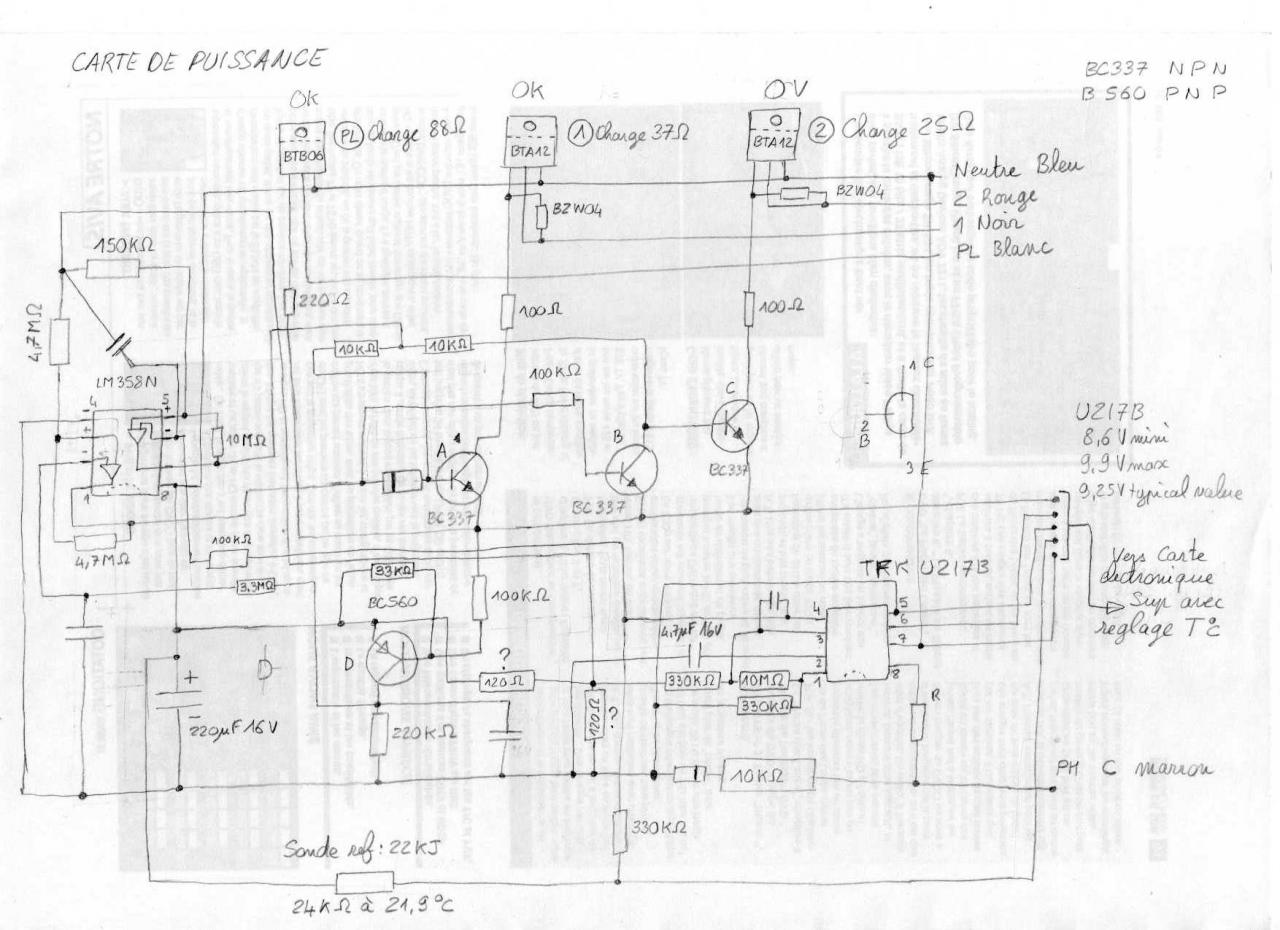 CARTE DE PUISSANCE
BC337 NPN
B 560 PNP
OK
OK
0V
BTB06
PL Charge 88Ω
BTA12
1 Charge 37Ω
BTA12
2 Charge 25Ω
Neutre Bleu
2 Rouge
1 Noir
PL Blanc
BZW04
BZW04
150KΩ
4,7MΩ
220Ω
100Ω
100Ω
10KΩ
10KΩ
100KΩ
LM358N
4
5
+
-
+
-
1
8
10MΩ
A
BC337
B
BC337
C
BC337
1 C
2
B
3 E
U217B
8,6V mini
9,9V max
9,25V typical value
4,7MΩ
100KΩ
3,3MΩ
33KΩ
BC560
D
100KΩ
TFK U217B
4
3
2
1
5
6
7
8
4,7µF 16V
?
120Ω
120Ω
?
330KΩ
10MΩ
330KΩ
R
Vers Carte
électronique
Sup avec
réglage T°C
+
-
220µF 16V
D
220KΩ
10KΩ
PH C marron
330KΩ
Sonde ref: 22KJ
24KΩ à 21,9°C